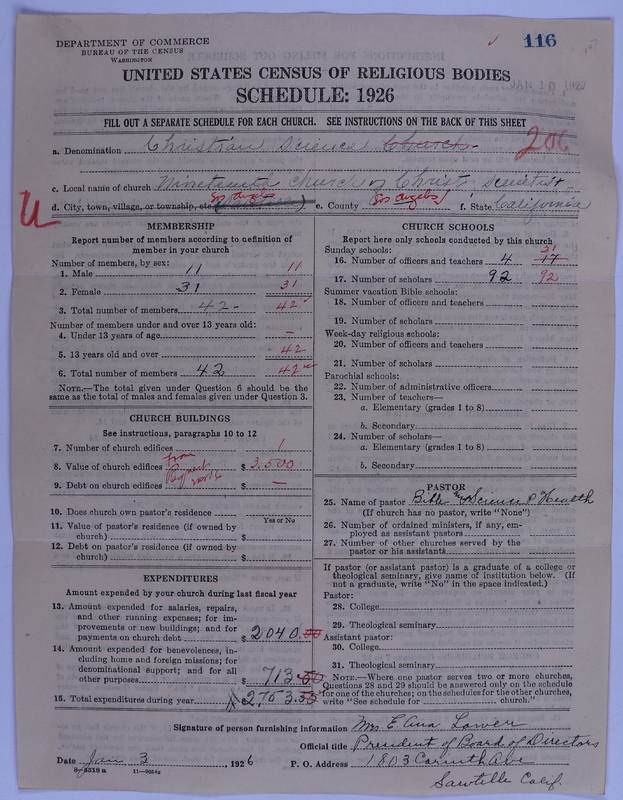 DEPARTMENT OF COMMERCE
BUREAU OF THE CENSUS
WASHINGTON
116
UNITED STATES CENSUS OF RELIGIOUS BODIES
JAN 10 1927
SCHEDULE: 1926
FILL OUT A SEPARATE SCHEDULE FOR EACH CHURCH. SEE INSTRUCTIONS ON THE BACK OF THIS SHEET
a. Denomination Christian Science Church 206
c. Local name of church Nineteenth Church of Christ, Scientist
d. City, town, village, or township, etc. Los Angeles e. County Los Angeles f. State California
MEMBERSHIP
Report number of members according to definition of
member in your church
Number of members, by sex:
1. Male 11 11
2. Female 31 31
3. Total number of members 42 42
Number of members under and over 13 years old:
4. Under 13 years of age —
5. 13 years old and over 42
6. Total number of members 42 42
NOTE.—The total given under Question 6 should be the
same as the total of males and females given under Question 3.
CHURCH BUILDINGS
See instructions, paragraphs 10 to 12
7. Number of church edifices 1
8. Value of church edifices from $ 3,500
9. Debt on church edifices $ —
10. Does church own pastor's residence
Yes or No
11. Value of pastor's residence (if owned by
church) $
12. Debt on pastor's residence (if owned by
church) $
EXPENDITURES
Amount expended by your church during last fiscal year
13. Amount expended for salaries, repairs,
and other running expenses; for im-
provements or new buildings; and for
payments on church debt $ 2040.00
14. Amount expended for benevolences, in-
cluding home and foreign missions; for
denominational support; and for all
other purposes $ 713.50
15. Total expenditures during year $ 2753.50
CHURCH SCHOOLS
Report here only schools conducted by this church
Sunday schools:
21
16. Number of officers and teachers 4 17
17. Number of scholars 92 92
Summer vacation Bible schools:
18. Number of officers and teachers
19. Number of scholars
Week-day religious schools:
20. Number of officers and teachers
21. Number of scholars
Parochial schools:
22. Number of administrative officers
23. Number of teachers—
a. Elementary (grades 1 to 8)
b. Secondary
24. Number of scholars—
a. Elementary (grades 1 to 8)
b. Secondary
PASTOR
25. Name of pastor Bible and Science & Health
(If church has no pastor, write "None")
26. Number of ordained ministers, if any, em-
ployed as assistant pastors
27. Number of other churches served by the
pastor or his assistants
If pastor (or assistant pastor) is a graduate of a college or
theological seminary, give name of institution below. (If
not a graduate, write "No" in the space indicated.)
Pastor:
28. College
29. Theological seminary
Assistant pastor:
30. College
31. Theological seminary
NOTE.—Where one pastor serves two or more churches,
Questions 28 and 29 should be answered only on the schedule
for one of the churches; on the schedules for the other churches,
write "See schedule for church."
Signature of person furnishing information Mrs E Ana Lower
Official title President of Board of Directors
Date Jan 3, 1926 P. O. Address 1803 Corinth Ave
8-5518 a 11-9054a Sawtelle Calif.